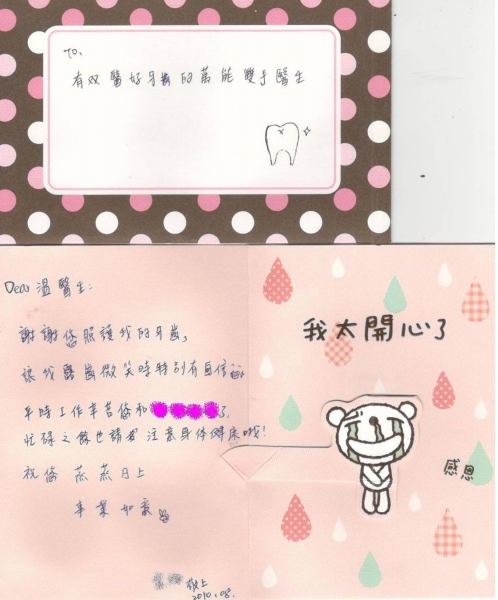 To,
有双醫好牙齒的萬能雙手醫生
Dear 溫醫生:
謝謝您照護我的牙齒,
讓我露齒微笑時特別有自信
平時工作辛苦您和
了,
忙碌之餘也請要注意身体健康哦!
祝您 蒸蒸日上
事業如意
敬上
2010.08.
我太開心了
感恩